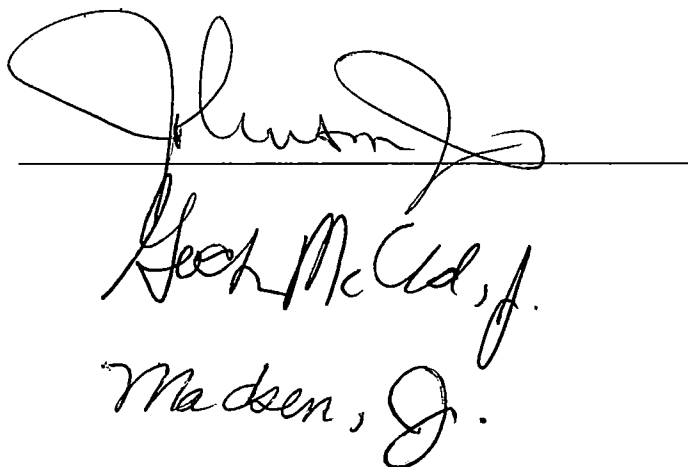 Johnson, J.
Gordon McCloud, J.
Madsen, J.